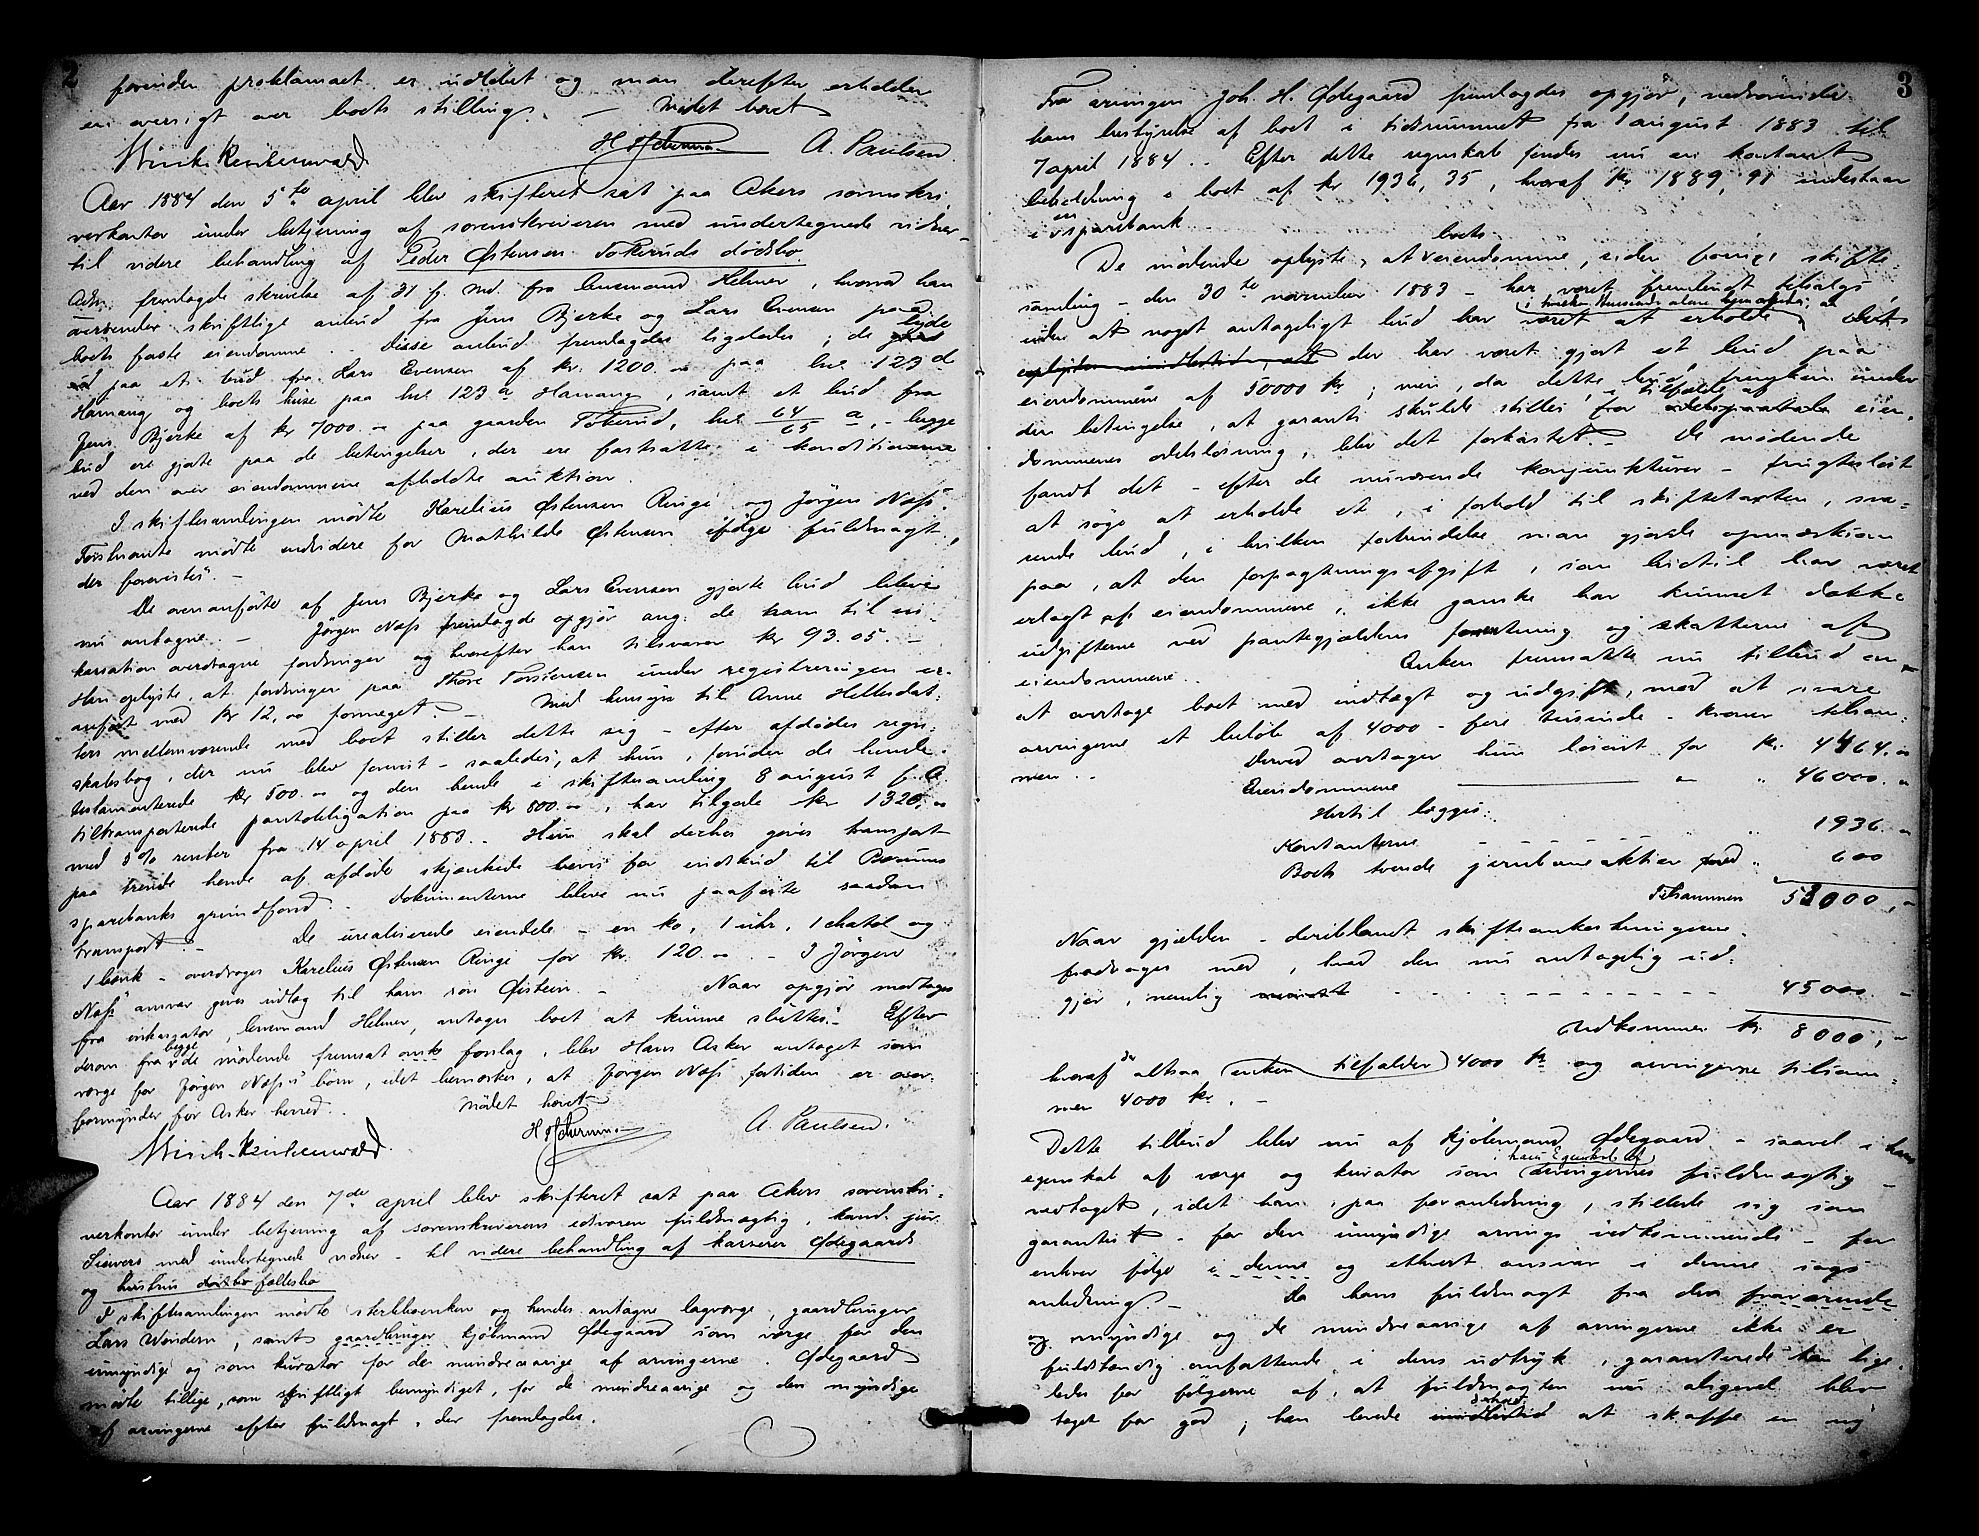 2
forinden proklamaet er udløbet og man derefter erholder
en oversigt over boets stilling. — Mødet hævet
A. Paulsen.
Aar 1884 den 5te april blev skifteret sat paa Akers sorenskri-
verkontor under betjening af sorenskriveren med undertegnede vidner –
til videre behandling af Peder Østensen Tokeruds dødsbo.
Adm. fremlagde skrivelse af 31 f. Md. fra lensmand Helmer, hvorved han
oversender skriftlige anbud fra Jens Bjerke og Lars Evensen paa
boets faste eiendomme. Disse anbud fremlagdes ligeledes; de lyde
paa et bud fra Lars Evensen af kr. 1200.00 paa lnr 123 d
Hamang og boets huse paa lnr 123 a Hamang, samt et bud fra
Jens Bjerke af kr 7000.– paa gaarden Tokerud, lnr 64/65 a, – begge
bud ere gjorte paa de betingelser, der ere fastsatte i konditionerne
ved den over eiendommene afholdte auktion.
I skiftesamlingen mødte Karelius Østensen Ringi og Jørgen Næss.
Førstnævnte mødte endvidere for Mathilde Østensen ifølge fuldmagt,
der forevistes. –
De ovenanførte af Jens Bjerke og Lars Evensen gjorte bud bleve
nu antagne. – Jørgen Næss fremlagde opgjør ang. de ham til in-
kassation overdragne fordringer og hvorefter han tilsvarer kr 93.05. –
Han oplyste, at fordringen paa Thore Torstensen under registreringen er
anført med kr 12,00 formeget. – Med hensyn til Anne Hellesdat-
ters mellemværende med boet stiller dette sig – efter afdødes regn-
skabsbog, der nu blev forevist – saaledes, at hun, foruden de hende
testamenterede kr 500.00 og den hende i skiftesamling 8 august f. A.
tiltransporterede pantobligation paa kr 800.00, har tilgode kr 1320,00
med 5% renter fra 14 april 1883. – Hun skal derhos gives transport
paa tvende hende af afdøde skjænkede bevis for indskud til Bærums
sparebanks grundfond. – Dokumenterne bleve nu paaførte saadan
transport. – De urealiserede eiendele – en ko, 1 uhr, 1 chatol og
1 bænk – overdroges Karelius Østensen Ringi for kr. 120.00 – I Jørgen
Næss' ansvar gives udlæg til hans søn Østein. – Naar opgjør modtages
fra inkassator, lensmand Helmer, antages boet at kunne sluttes. – Efter
derom fra begge de mødende fremsat ønske forslag, blev Hans Asker antaget som
værge for Jørgen Næss's børn, idet bemærkes, at Jørgen Næss fortiden er over-
formynder for Asker herred. Mødet hævet
A. Paulsen.
Aar 1884 den 7de april blev skifteret sat paa Akers sorenskri-
verkontor under betjening af sorenskriverens edsvorne fuldmægtig, kand. jur.
Siewers med undertegnede vidner – til videre behandling af kasserer Ødegaards
og hustrus dødsbo fællesbo
I skiftesamlingen mødte sterkboenken og hendes antagne lagværge, gaardbruger
Lars Wendern, samt gaardbruger kjøbmand Ødegaard som værge for den
umyndige og som kurator for de mindreaarige af arvingerne. Ødegaard
mødte tillige, som skriftligt bemyndiget, for de mindreaarige og den myndige
af arvingerne efter fuldmagt, der fremlagdes.
3
Fra arvingen Joh. H. Ødegaard fremlagdes opgjør, vedrørende
hans bestyrelse af boet i tidsrummet fra 1 august 1883 til
7 april 1884. – Efter dette regnskab fandes nu en kontant
beholdning i boet af kr 1936,35, hvoraf kr 1889,91 indestaar
i en sparebank.
De mødende oplyste, at boets eiendomme, siden forrige skifte-
samling – den 30te november 1883 – har været frembudt tilsalgs,
uden at noget antageligt bud har været at erholde,
oplyste imidlertid, at der har været gjort et bud paa
eiendommene af 50000 kr; men, da dette bud fremkom under
den betingelse, at garanti skulde stilles for i tilfælde af eien-
dommenes odelsløsning, blev det forkastet. – De mødende
fandt det – efter de nuværende konjunkturer – frugtesløst
at søge at erholde et, i forhold til skiftetaxten, sva-
rende bud, i hvilken forbindelse man gjorde opmærksom
paa, at den forpagtningsafgift, som hidtil har været
erlagt af eiendommene, ikke ganske har kunnet dække
udgifterne ved pantegjældens forrentning og skatterne af
eiendommene. – Enken fremsatte nu tilbud om
at overtage boet med indtægt og udgift, mod at svare
arvingerne et beløb af 4000 – fire tusinde – kroner tilsam-
men. – Derved overtager hun løsøret for kr. 4464.00
Eiendommene — „ „ 46000.00
Hertil lægges:
Kontanterne „ 1936.00
Boets tvende jernbaneaktier med „ 600
Tilsammen 53000,–
Naar gjælden – deriblandt skifteomkostningerne –
fradrages med, hvad den nu antagelig ud-
gjør, nemlig 45000. –
Udkommer kr. 8000,–
hvoraf da altsaa (enken tilfalder) 4000 kr og arvingerne tilsam-
men 4000 kr. –
Dette tilbud blev nu af kjøbmand Ødegaard – saavel i hans
egenskab af værge og kurator som i hans Egenskab af arvingernes fuldmægtig –
vedtaget, idet han, paa foranledning, stillede sig som
garantist – for den umyndige arvings vedkommende – for
enhver følge i denne og ethvert ansvar i denne sags
anledning. – Da hans fuldmagt fra den fraværende
og myndige og de mindreaarige af arvingerne ikke er
fuldstændig omfattende i dens udtryk, garanterede han lige-
ledes for følgerne af, at fuldmagten nu aligevel blev
taget for god; han lovede imidlertid at skaffe en ny